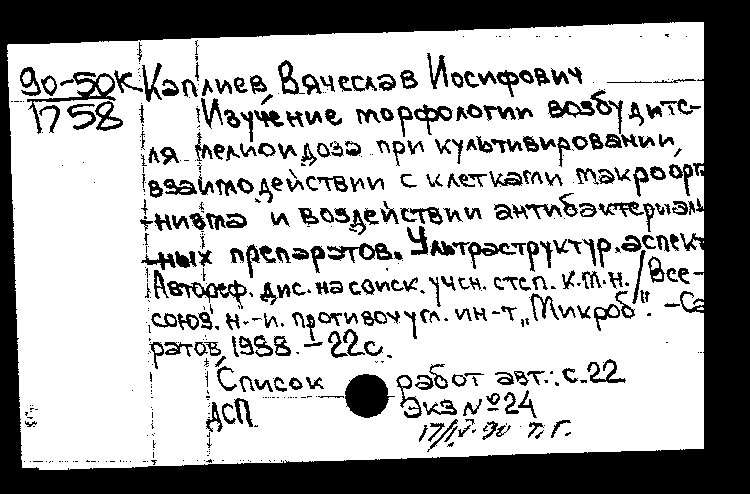 90-50К Каплиев Вячеслав Иосифович
1758 Изучение морфологии возбудите-
ля мелиоидоза при культивировании,
взаимодействии с клетками макроорга
-низма и воздействии антибактериаль
-ных препаратов. Ультраструктур. аспект
Автореф. дис. на соиск. учен. степ. к.м.н. / Все-
союз. н.-и. противочум. ин-т „Микроб". - Са
ратов, 1988. - 22с.
Список работ авт.: с.22
ДСП Экз № 24
17/IV-90 т. Г.